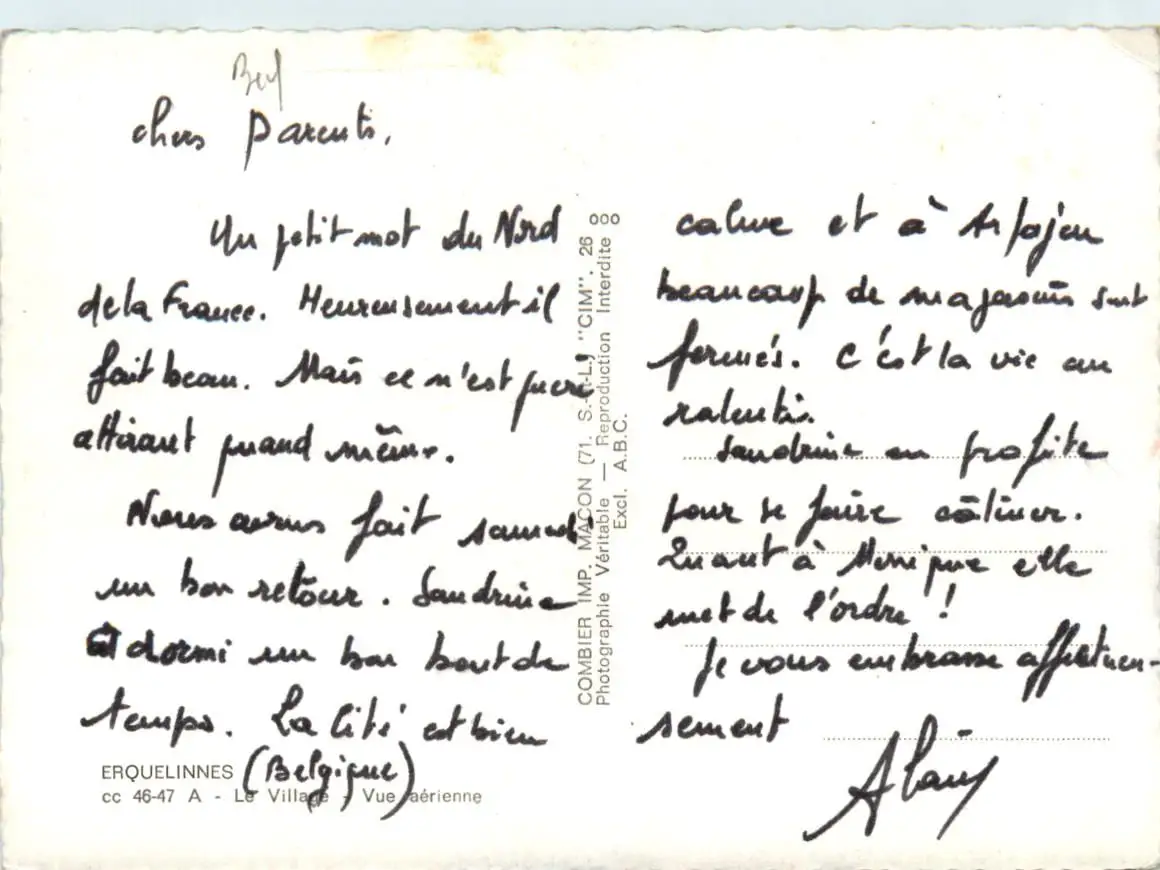 chers Parents,
Un petit mot du Nord
de la France. Heureusement il
fait beau. Mais ce n'est guère
attirant quand même.
Nous avons fait samedi
un bon retour. Sandrine
a dormi un bon bout de
temps. La Cité est bien
calme et à Arpajon
beaucoup de magasins sont
fermés. C'est la vie au
ralenti.
Sandrine en profite
pour se faire câliner.
Quant à Monique elle
met de l'ordre !
Je vous embrasse affectueu-
sement
Alain
ERQUELINNES (Belgique)
cc 46-47 A - Le Village - Vue aérienne
COMBIER IMP. MACON (71. S.-et-L.) "CIM". 26 000
Photographie Véritable — Reproduction Interdite
Excl. A.B.C.